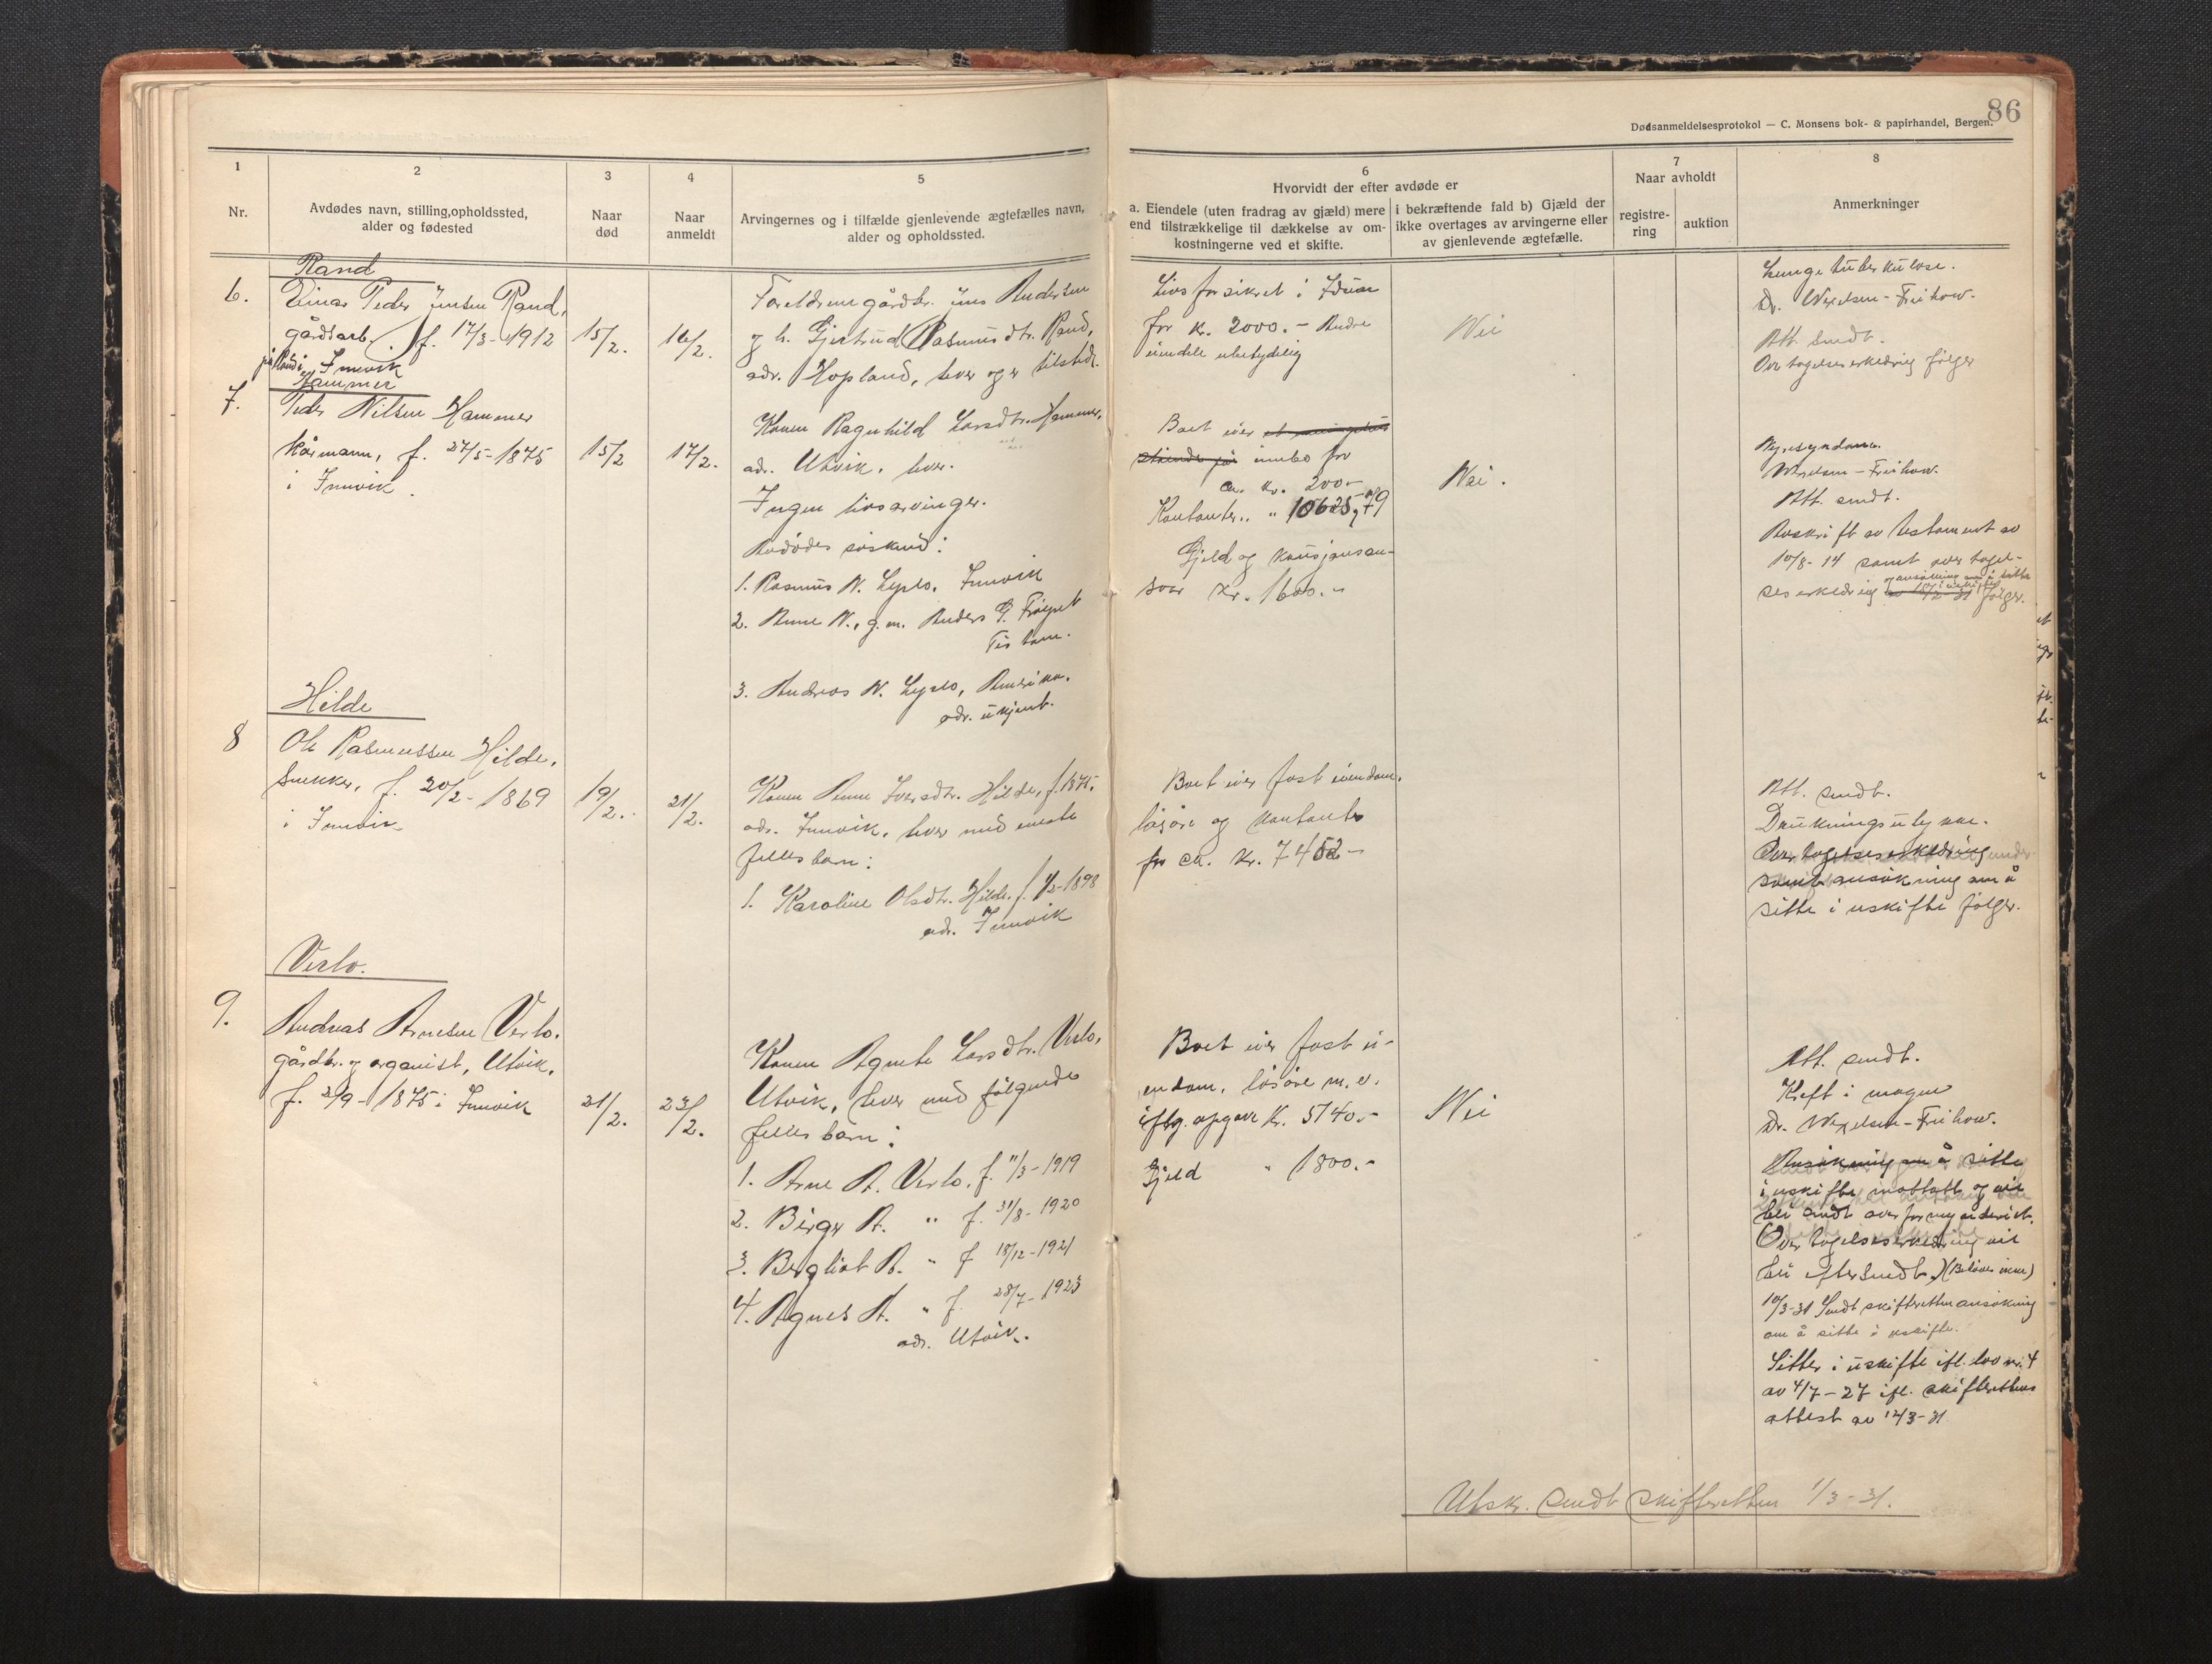 86
Dødsanmeldelsesprotokol — C. Monsens bok- & papirhandel, Bergen.
1
Nr.
2
Avdødes navn, stilling, opholdssted,
alder og fødested
3
Naar
død
4
Naar
anmeldt
5
Arvingernes og i tilfælde gjenlevende ægtefælles navn,
alder og opholdssted.
6
Hvorvidt der efter avdøde er
a. Eiendele (uten fradrag av gjæld) mere
end tilstrækkelige til dækkelse av om-
kostningerne ved et skifte.
i bekræftende fald b) Gjæld der
ikke overtages av arvingerne eller
av gjenlevende ægtefælle.
7
Naar avholdt
registre-
ring
auktion
8
Anmerkninger
Rand
6.
Einar Peder Jensen Rand,
gårdsarb. f. 17/3-1912
Innvik
15/2.
16/2.
Foreldrene gårdbr. Jens Andersen
og h. Gjertrud Rasmusdtr. Rand,
adr. Hopland, lever og er tilstede.
Livsforsikret i Idun
for kr. 2000.- Andre
eiendele ubetydelig
Nei
Lungetuberkulose.
Dr. Wexelsen-Freihow.
Att. sendt.
Overtagelseserklæring følger
Hammer
7.
Peder Nilsen Hammer
kårmann, f. 27/5-1875
i Innvik.
15/2
17/2.
Konen Ragnhild Larsdtr. Hammer,
adr. Utvik, lever.
Ingen livsarvinger.
Avdødes søsken:
1. Rasmus N. Lyslo, Innvik
2. Anne N., g.m. Anders G. Frøyset
Tistam.
3. Andreas N. Lyslo, Amerika.
adr. ukjent.
Boet eier
innbo for
ca. kr. 200-
Kontanter.. " 10625,79
Gjeld og kausjonsan-
svar kr. 1600.-
Nei.
Nyresyndom.
Wexelsen-Freihow.
Att. sendt.
Avskrift av testament av
10/8-14 samt overtagel-
seserklæring og ansøkning om å sitte
i uskifte følger.
Hilde
8
Ole Rasmussen Hilde,
snekker, f. 20/2-1869
i Innvik
19/2.
21/2.
Konen Anne Iversdtr. Hilde, f. 1875,
adr. Innvik, lever med eneste
felles barn:
1. Karoline Olsdtr. Hilde, f. 1/2-1898
adr. Innvik
Boet eier fast eiendom,
løsøre og kontanter
for ca. kr. 7452-
Att. sendt.
Drukningsulykke.
Overtagelseserklæring
samt ansøkning om å
sitte i uskifte følger.
Verlo.
9.
Andreas Arnesen Verlo.
gårdbr. og organist, Utvik,
f. 2/9-1875 i Innvik
21/2.
23/2.
Konen Agnete Larsdtr. Verlo,
Utvik, lever med følgende
felles barn:
1. Arne A. Verlo, f. 11/3-1919
2. Birger A. " f. 31/8-1920
3. Bergliot A. " f 18/12-1921
4. Agnes A. " f. 28/7-1923
adr. Utvik.
Boet eier fast ei-
endom, løsøre m.v.
iflg. opgave kr. 5140.-
Gjeld " 1800.-
Nei
Att. sendt.
Kreft i magen
Dr. Wexelsen-Freihow.
Ansøkning om å sitte
i uskifte mottatt og vil
bli sendt overformynderiet.
Overtagelseserklæring vil
bli eftersendt. (Behøves ikke)
10/3-31 Sendt skifteretten ansøkning
om å sitte i uskifte.
Sitter i uskifte ifl. lov nr. 4
av 4/7-27 ifl. skifterettens
attest av 12/3-31
Utskr. sendt skifteretten 1/3-31.